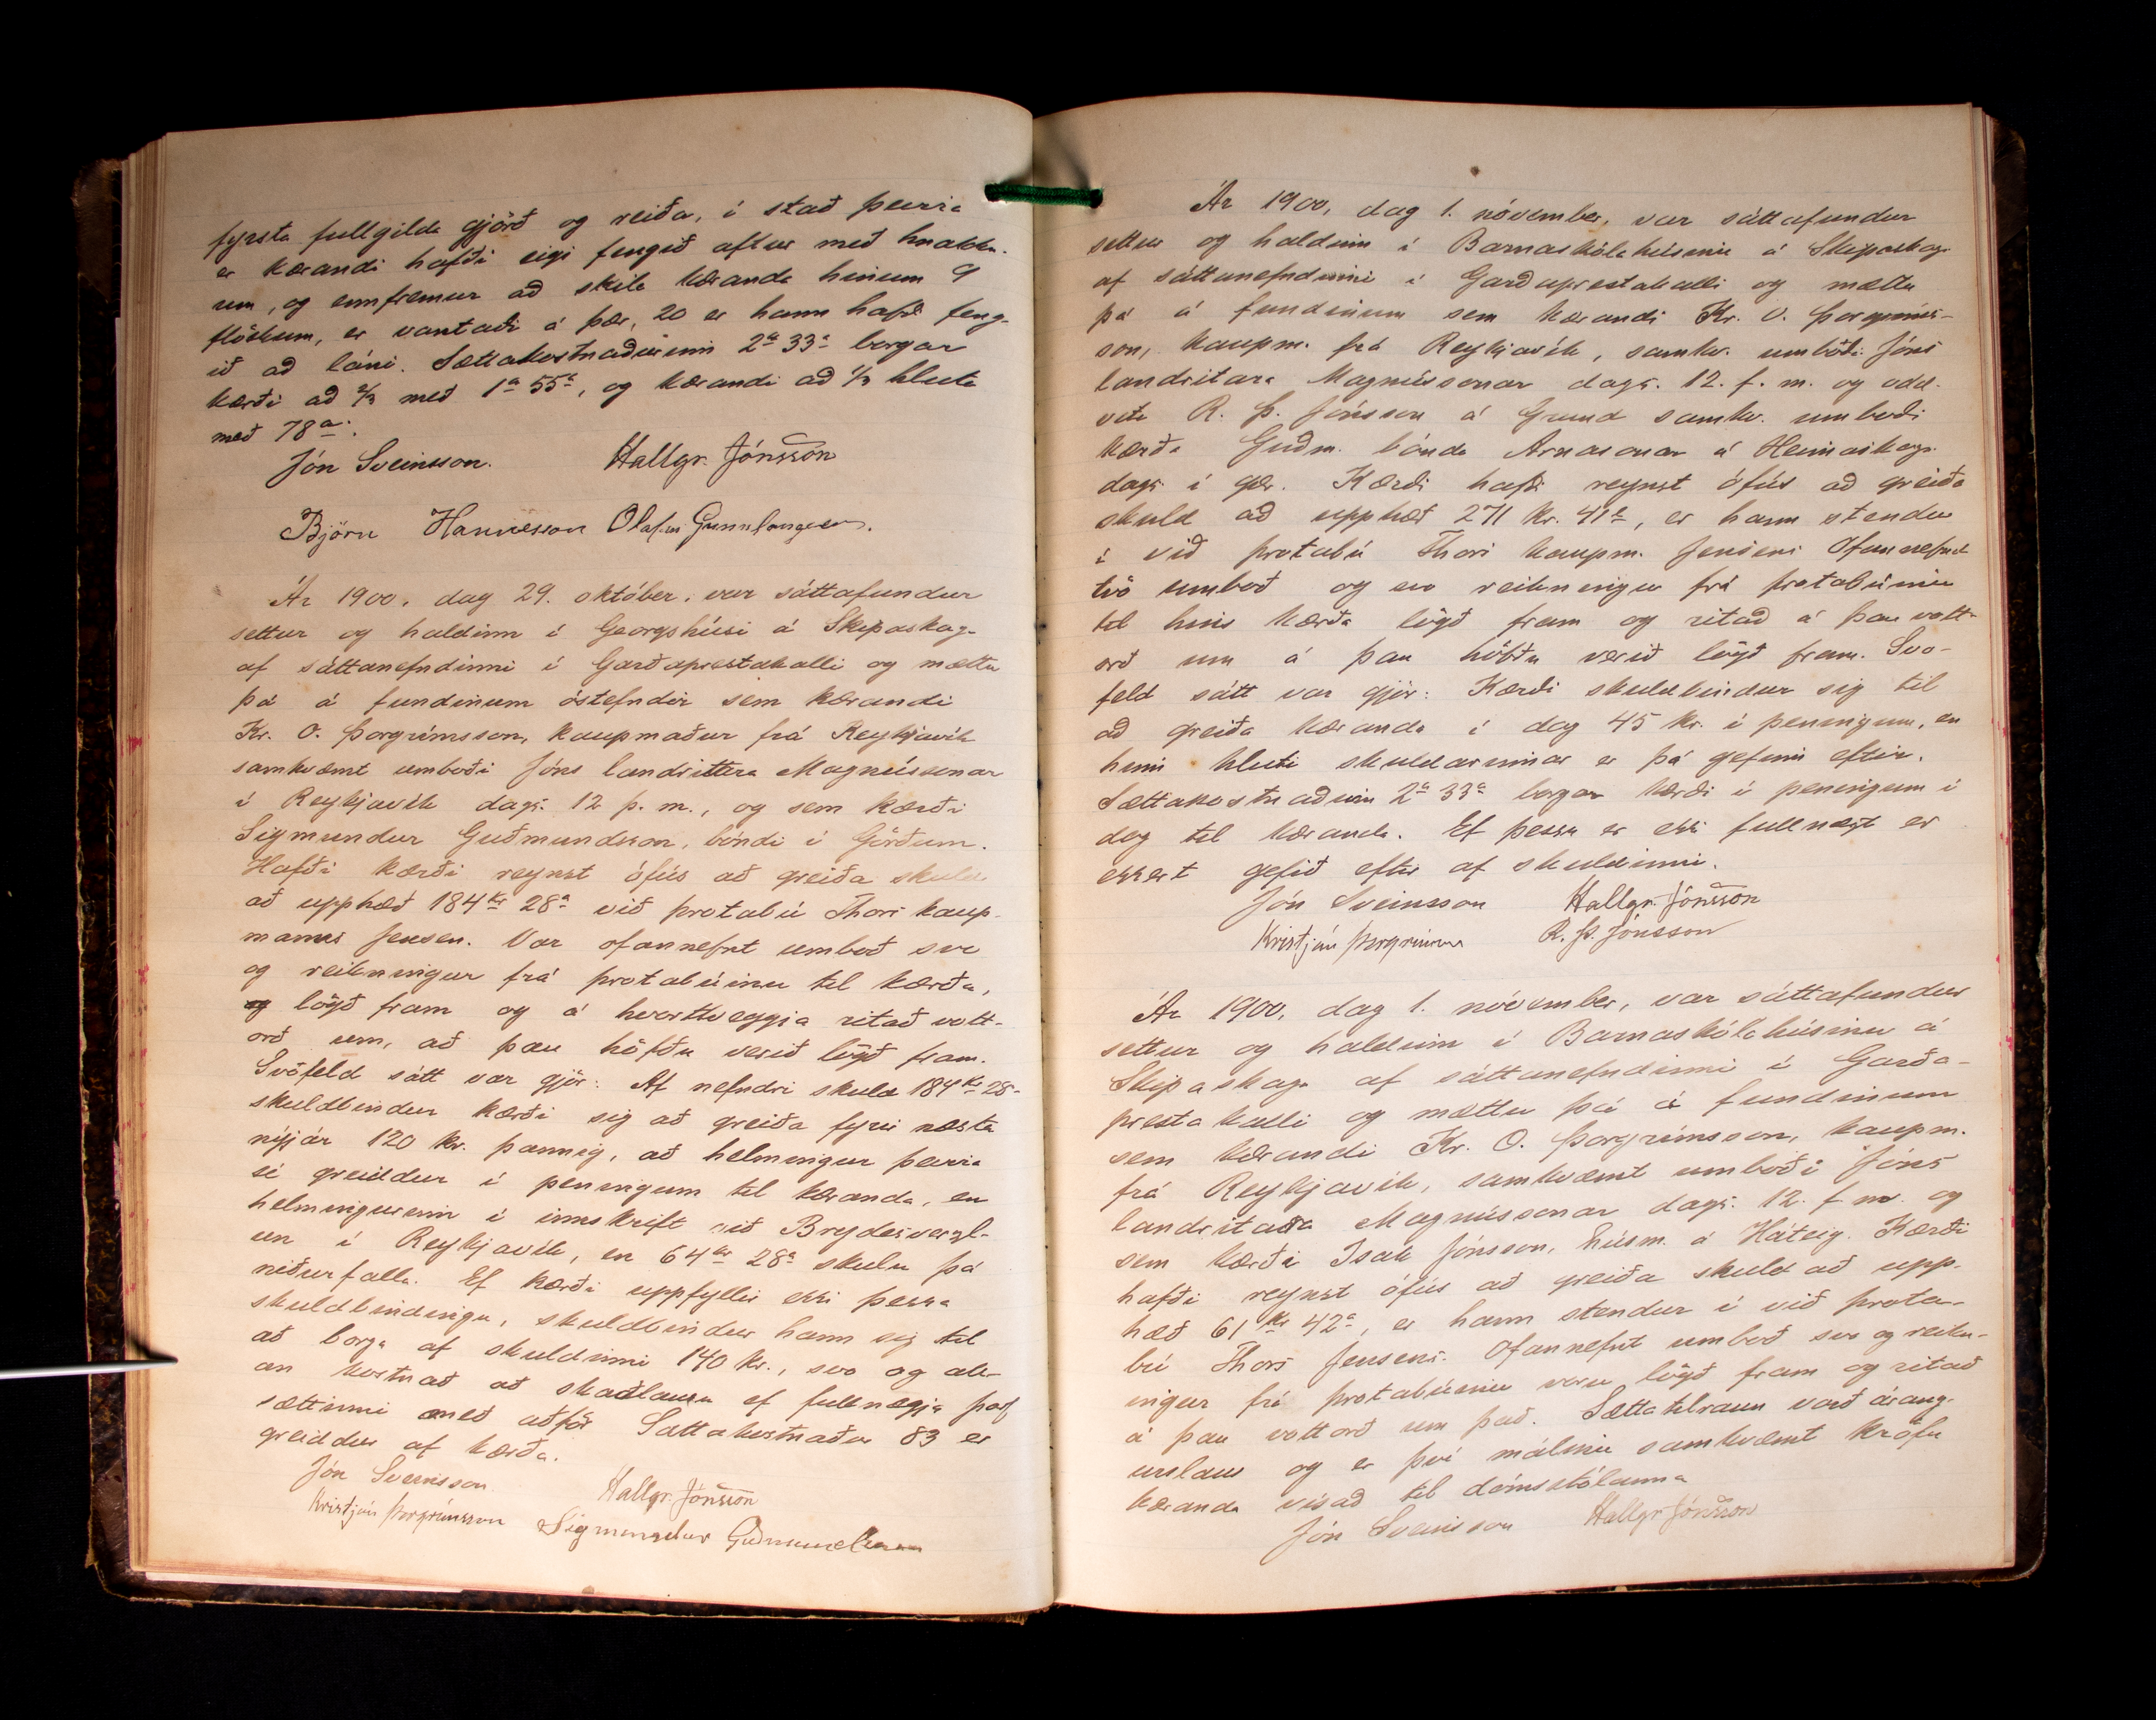 fyrsta fullgilda gjörð og reiða, í stað þeirra
er kærandi hafði eigi fengið aftur með hnakkn-
um, og ennfremur að skila kæranda hinum 9
flöskum, er vantaði á þær, 20 er hann hafði feng-
ið að láni. Sættakostnaðurinn 2 a 33 a borgar
kærði að 2/3 með 1 a 55 a, og kærandi að 1/3 hluta
með 78 a.
Jón Sveinsson. Hallgr. Jónsson
Björn Hannesson Olafur Gunnlaugsson.
Ár 1900, dag 29. október, var sáttafundur
settur og haldinn í Georgshúsi á Skipaskaga
af sáttanefndinni í Garðaprestakalli og mættu
þá á fundinum óstefndir sem kærandi
Kr. O. Þorgrímsson, kaupmaður frá Reykjavík
samkvæmt umboði Jóns landritara Magnússonar
í Reykjavík dags. 12 þ. m., og sem kærði
Sigmundur Guðmundsson, bóndi í Görðum.
Hafði kærði reynst ófús að greiða skuld
að upphæð 184 kr 28 a við þrotabú Thors kaup-
manns Jensen. Var ofannefnt umboð svo
og reikningur frá þrotabúinu til kærða,
og lögð fram og á hvorttveggja ritað vott-
orð um, að þau höfðu verið lögð fram.
Svófeld sátt var gjör: Af nefndri skuld 184 Kr 28-
skuldbindur kærði sig að greiða fyrir næsta
nýjár 120 kr. þannig, að helmingur þeirra
sé greiddur í peningum til kæranda, en
helmingurinn í innskrift við Brydesverzl-
un í Reykjavík, en 64 kr 28 a skulu þá
niðurfalla. Ef kærði uppfyllir ekki þessa
skuldbindingu, skuldbindur hann sig til
að borga af skuldinni 140 kr., svo og all-
an kostnað að skaðlausu ef fullnægja þarf
sættinni með aðför. Sáttakostnaður 83 er
greiddur af kærða.
Jón Sveinsson Hallgr. Jónsson
Kristján Þorgrímsson Sigmundur Guðmundsson
Ár 1900, dag 1. nóvember, var sáttafundur
settur og haldinn í Barnaskólahúsinu á Skipaskaga
af sáttanefndinni í Garðaprestakalli og mættu
þá á fundinum sem kærandi Kr. O. Þorgríms-
son, kaupm. frá Reykjavík, samkv. umboði Jóns
landritara Magnússonar dags. 12. f. m. og odd-
viti R. Þ. Jónsson á Grund samkv. umboði
kærða Guðm. bónda Arnasonar á Heimaskaga
dags. í gær. Kærði hafði reynst ófús að greiða
skuld að upphæð 271 kr. 41 a, er hann stendur
í við þrotabú Thors kaupm. Jensens. Ofannefnd
tvö umboð og svo reikningur frá þrotabúinu
til hins kærða lögð fram og ritað á þau vott-
orð um á þau höfðu verið lögð fram. Svo-
feld sátt var gjör: Kærði skuldbindur sig til
að greiða kæranda í dag 45 kr. í peningum, en
hinn hluti skuldarinnar er þá gefinn eftir.
Sættakostnaðurinn 2 a 33 a borgar kærði í peningum í
dag til kæranda. Ef þessu er ekki fullnægt er
ekkert gefið eftir af skuldinni.
Jón Sveinsson Hallgr. Jónsson
Kristján Þorgrímsson R. Þ. Jónsson
Ár 1900, dag 1. nóvember, var sáttafundur
settur og haldinn í Barnaskólahúsinu á
Skipaskaga af sáttanefndinni í Garða-
prestakalli og mættu þá á fundinum
sem kærandi Kr. O. Þorgrímsson, kaupm.
frá Reykjavík, samkvæmt umboði Jóns
landritara Magnússonar dags. 12. f. m. og
sem kærði Isak Jónsson, húsm. á Háteig. Kærði
hafði reynst ófús að greiða skuld að upp-
hæð 61 kr 42 a, er hann stendur í við þrota-
bú Thors Jensens. Ofannefnt umboð svo og reikn-
ingur frá þrotabúinu voru lögð fram og ritað
á þau vottorð um það. Sættatilraun varð árang-
urslaus og er því málinu samkvæmt kröfu
kæranda vísað til dómstólanna
Jón Sveinsson Hallgr Jónsson